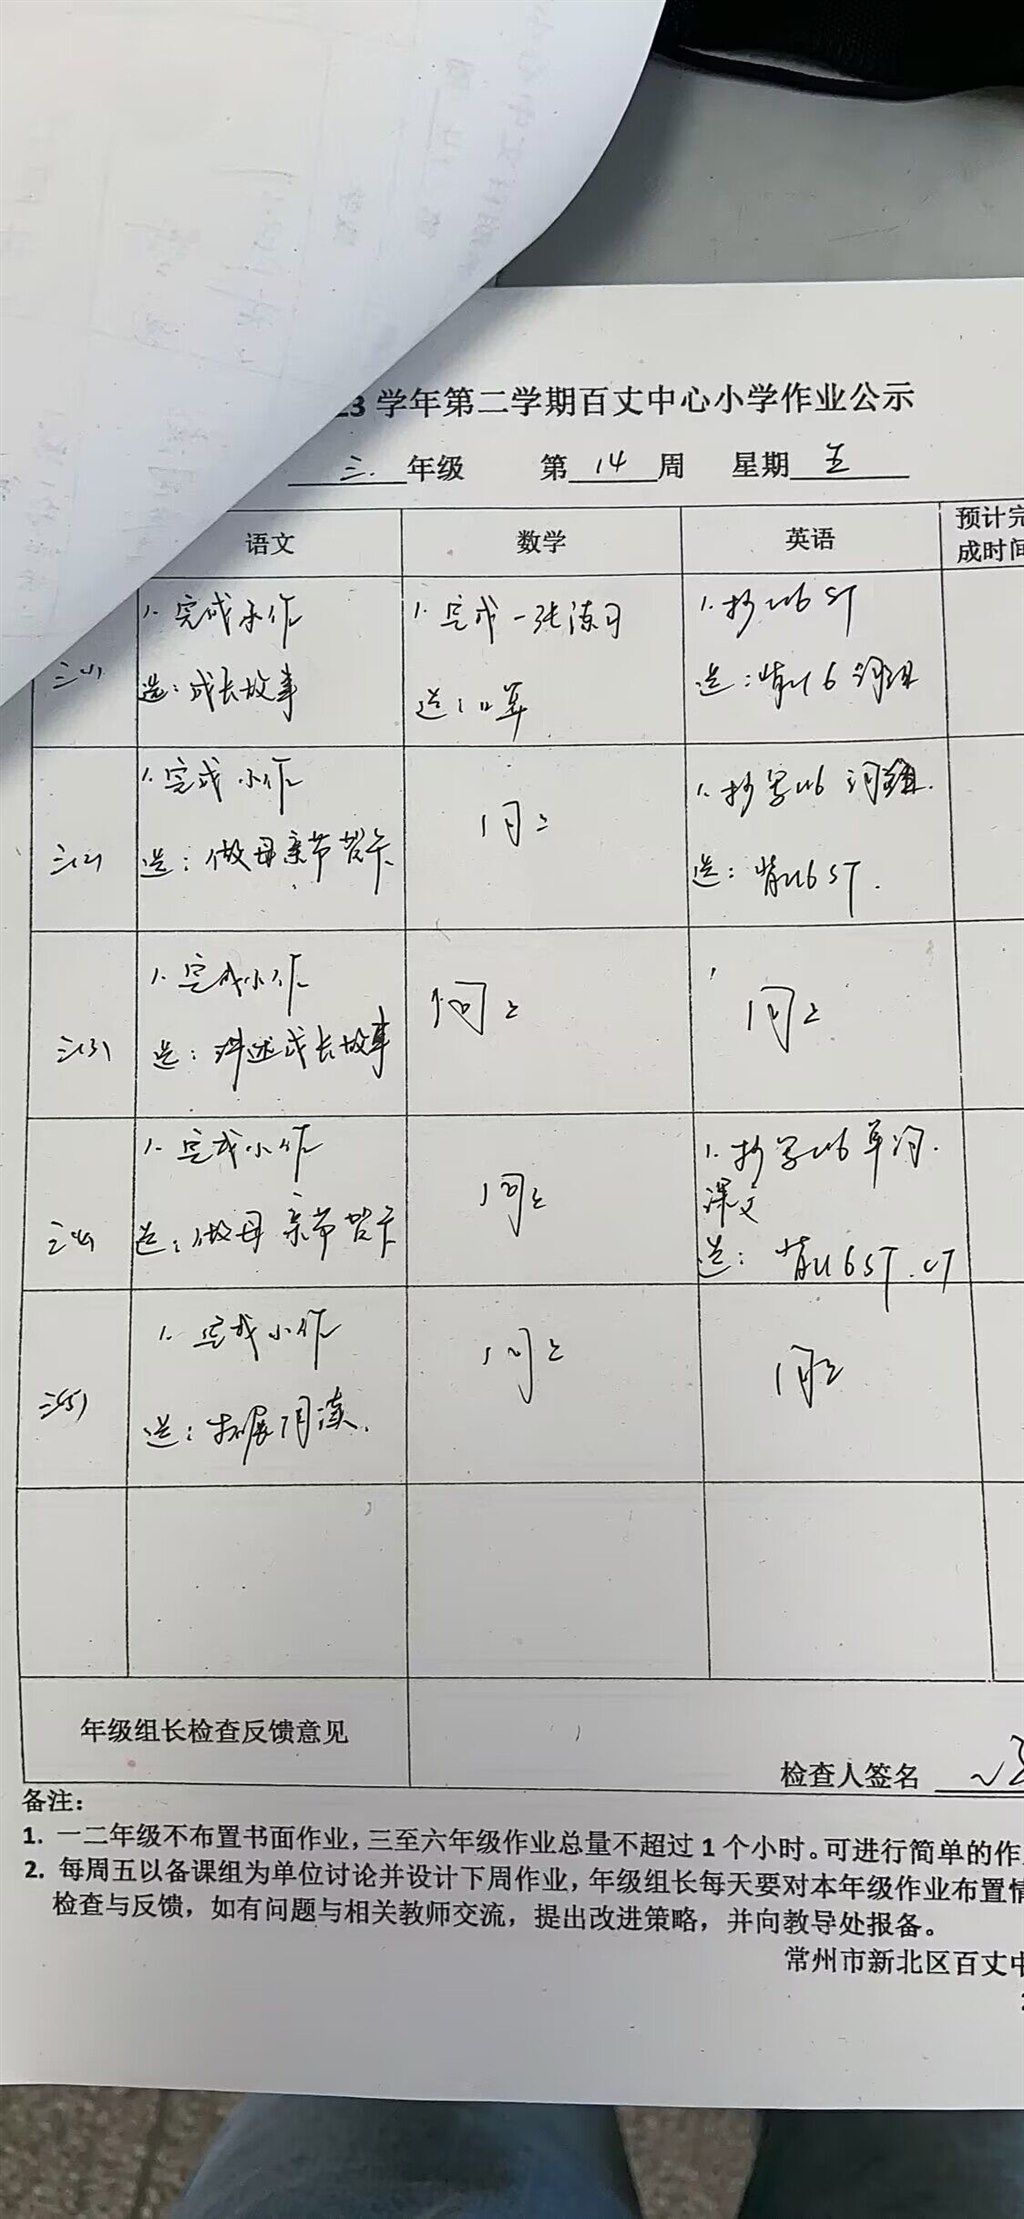 23 学年第二学期百丈中心小学作业公示
三. 年级 第 14 周 星期 五
语文 数学 英语 预计完
成时间
三(1)
1. 完成小作
选: 成长故事
1. 完成一张练习
选: 口算
1. 抄U6 ST
选: 背U6 词组
三(2)
1. 完成小作
选: 做母亲节贺卡
同上
1. 抄写U6 词组.
选: 背U6 ST.
三(3)
1. 完成小作
选: 讲述成长故事
同上
同上
三(4)
1. 完成小作
选: 做母亲节贺卡
同上
1. 抄写U6 单词.
课文
选: 背U6 ST. CT
三(5)
1. 完成小作
选: 拓展阅读.
同上
同上
年级组长检查反馈意见
检查人签名
备注:
1. 一二年级不布置书面作业, 三至六年级作业总量不超过 1 个小时。可进行简单的作
2. 每周五以备课组为单位讨论并设计下周作业, 年级组长每天要对本年级作业布置情
检查与反馈, 如有问题与相关教师交流, 提出改进策略, 并向教导处报备。
常州市新北区百丈中